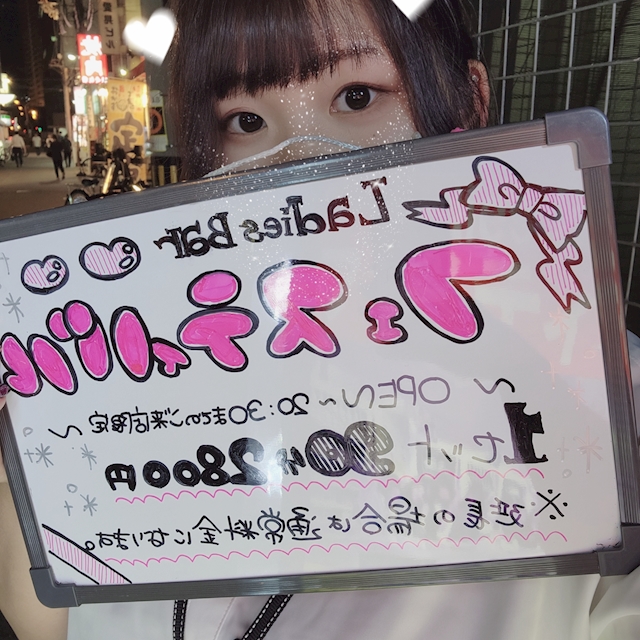 Ladies Bar
フェスティバル
～OPEN～20:30までのご来店限定～
1セット30分2800円
※延長の場合は通常料金になります。